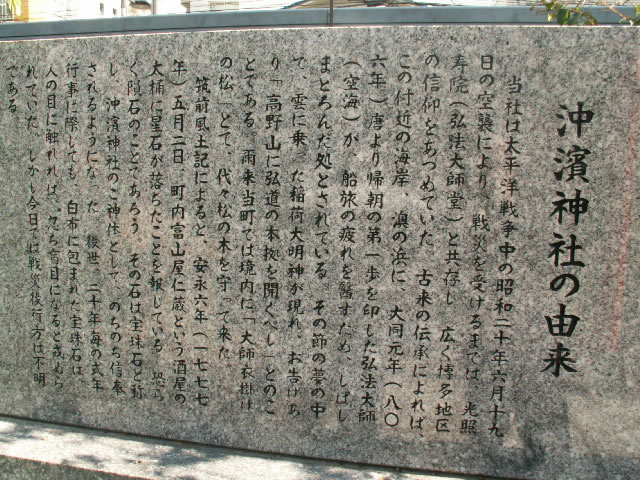 沖濱神社の由来
当社は太平洋戦争中の昭和二十年六月十九
日の空襲により、戦災を受けるまでは、光照
寿院(弘法大師堂)と共存し、広く博多地区
の信仰をあつめていた。古来の伝承によれば、
この付近の海岸、濵の浜に、大同元年(八〇
六年)唐より帰朝の第一歩を印した弘法大師
(空海)が、船旅の疲れを醫すため、しばし
まどろんだ処とされている。その節の夢の中
で、雲に乗った稲荷大明神が現れ、お告げあ
り「高野山に弘道の本拠を開くべし」とのこ
とである。雨来当町では境内に「大師衣掛け
の松」とて、代々松の木を守って来た。
筑前風土記によると、安永六年(一七七七
年)五月二日、町内富山屋仁蔵という酒屋の
大桶に星石が落ちたことを報している。恐ら
く隕石のことであろう。その石は宝珠石と称
し、沖濱神社のご神体として、のちのち信奉
されるようになった。後世、二十年毎の式年
行事に際しても、白布に包まれた宝珠石は、
人の目に触れれば、忽ち盲目になると戒めら
れていた。しかし今日では戦災後行方は不明
である。